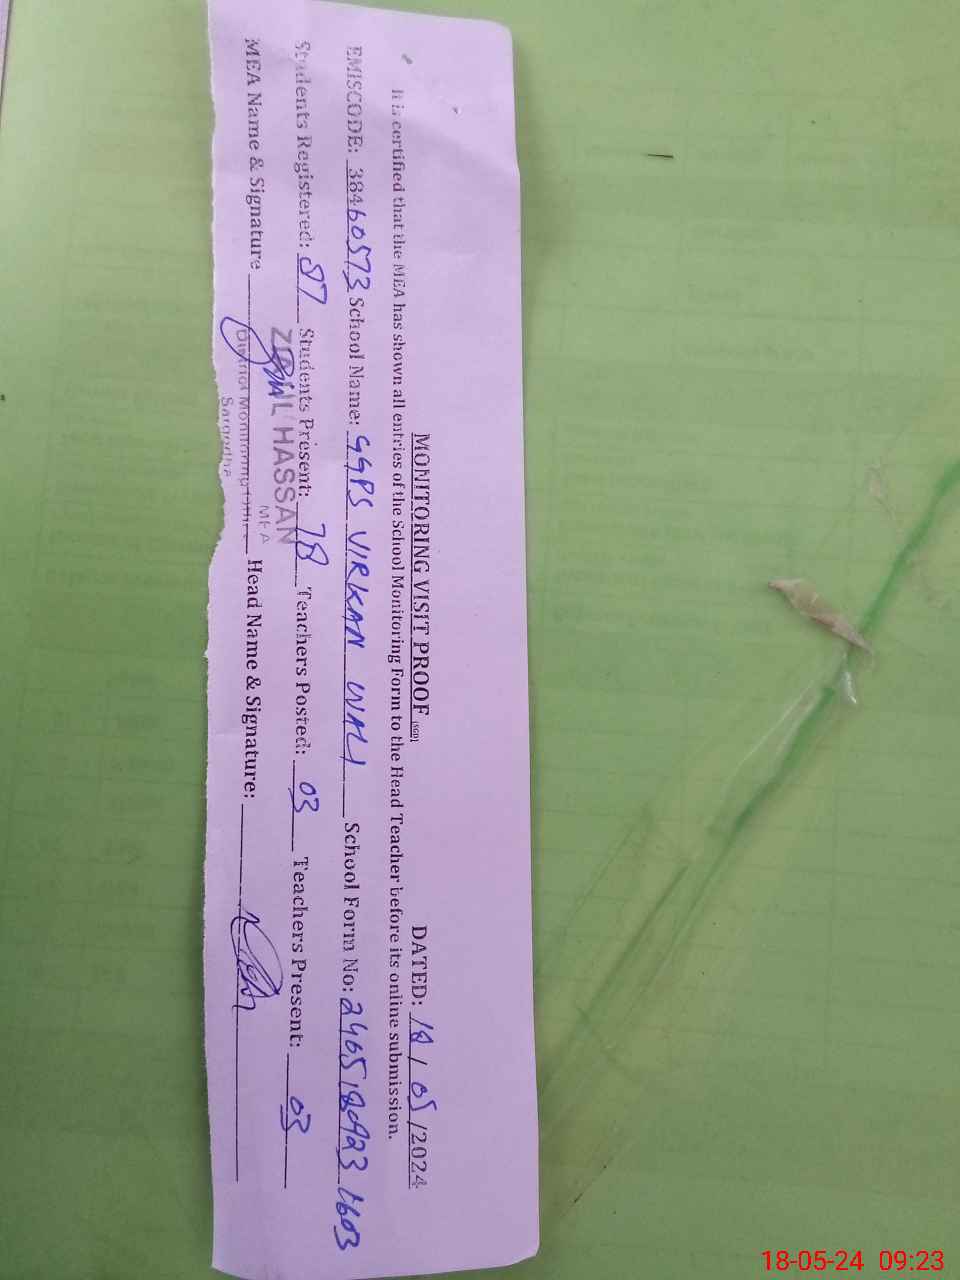 MONITORING VISIT PROOF (SGD) DATED: 18 / 05 /2024
It is certified that the MEA has shown all entries of the School Monitoring Form to the Head Teacher before its online submission.
EMISCODE: 38460573 School Name: GGPS VIRKAN WALI School Form No:
Students Registered: 87 Students Present: 78 Teachers Posted: 03 Teachers Present: 03
HASSAN
MEA
MEA Name & Signature Head Name & Signature:
District Monitoring
Sargodha
18-05-24 09:23